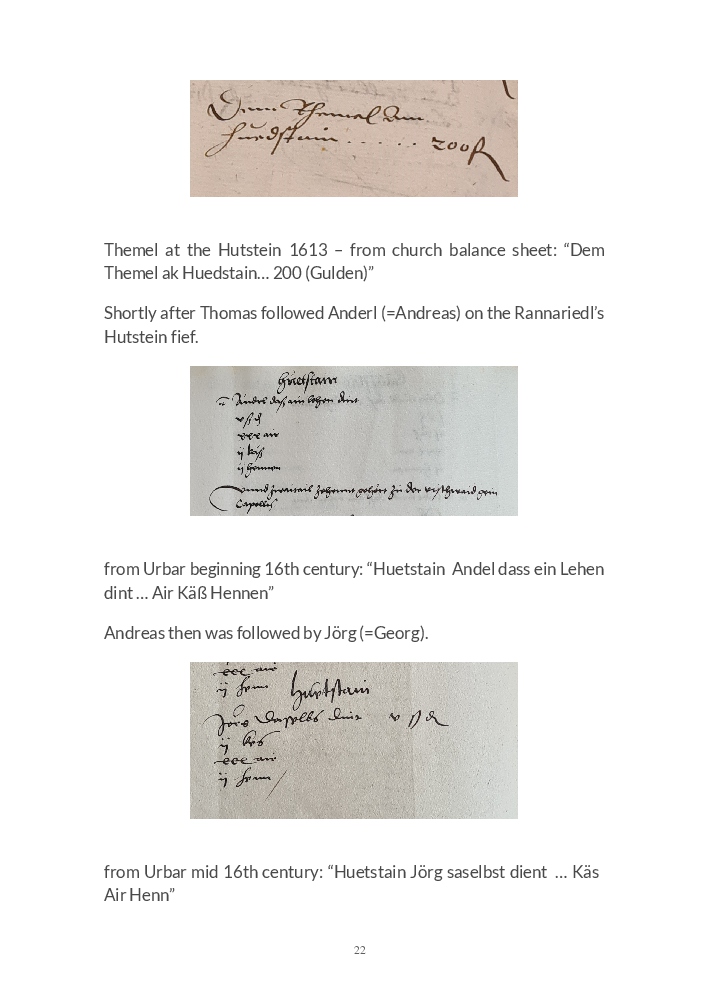 Dem Themel am
Huedstain . . . . . 200 fl
Themel at the Hutstein 1613 – from church balance sheet: “Dem
Themel ak Huedstain... 200 (Gulden)”
Shortly after Thomas followed Anderl (=Andreas) on the Rannariedl’s
Hutstein fief.
Huetstain
Anderl das ain lehen dint
v ß d
xxx air
ij käß
ij hennen
unnd zwaitail zehennt gehört zu der
Capellen
from Urbar beginning 16th century: “Huetstain Andel dass ein Lehen
dint ... Air Käß Hennen”
Andreas then was followed by Jörg (=Georg).
xxx air
ij henn
Huetstain
Jörg daselbs dint v ß d
ij kes
xxx air
ij henn
from Urbar mid 16th century: “Huetstain Jörg saselbst dient ... Käs
Air Henn”
22